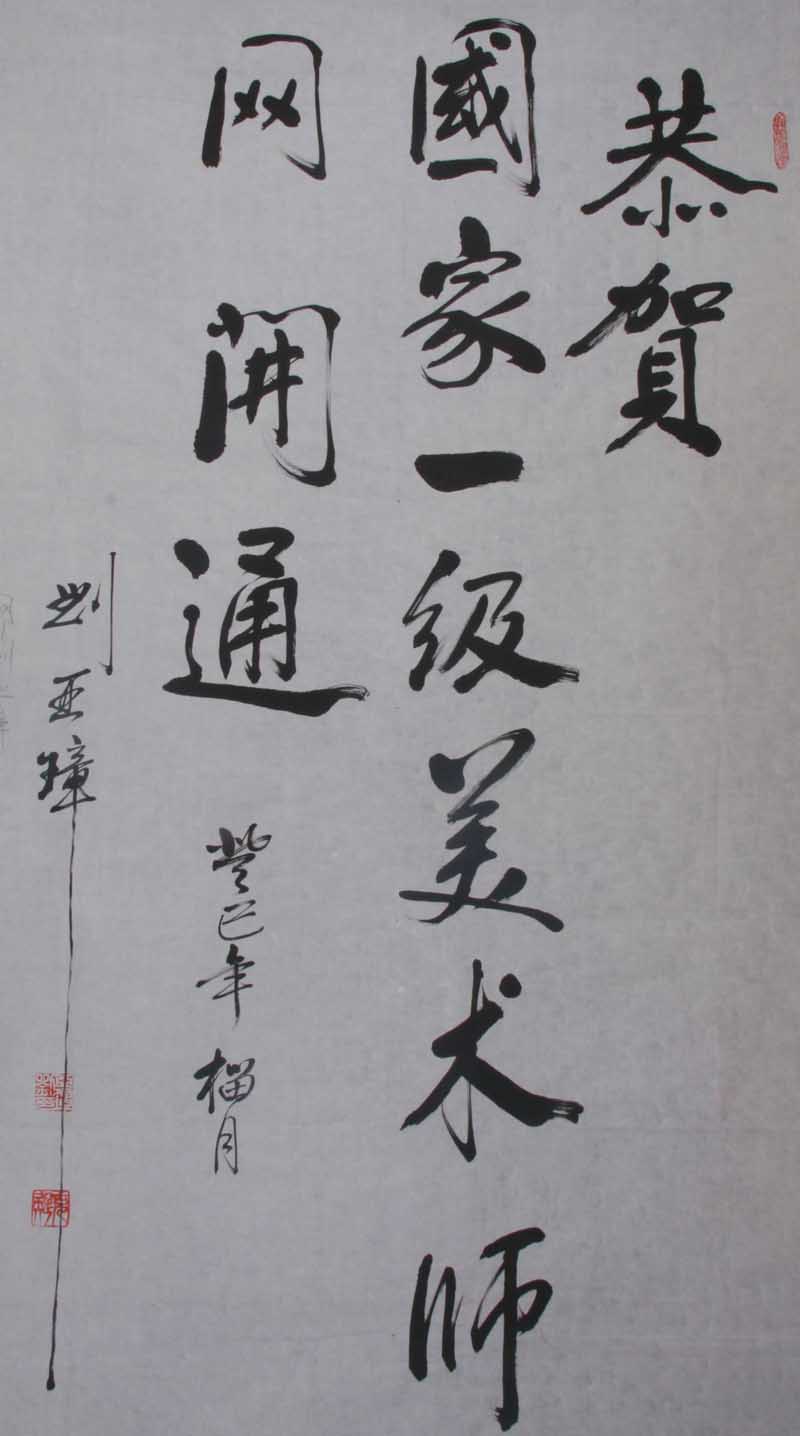 恭賀
國家一级美术师
网開通
癸巳年榴月
刘亚璋